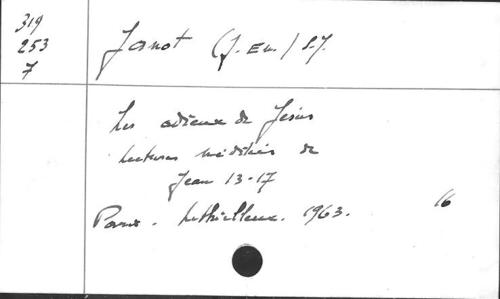 319
253
7
Janot (J. Em.) S.J.
Les adieux de Jésus
Lectures méditées de
Jean 13-17
Paris. Lethielleux. 1963.
16